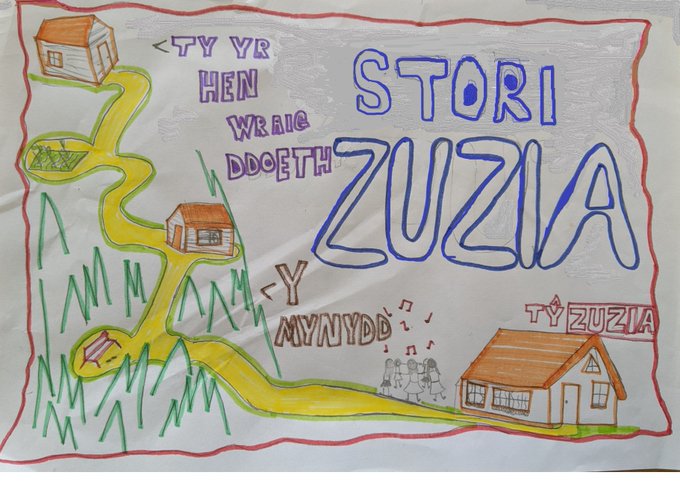 <TY YR
HEN
WRAIG
DDOETH
STORI
ZUZIA
<Y
MYNYDD
TŶ ZUZIA